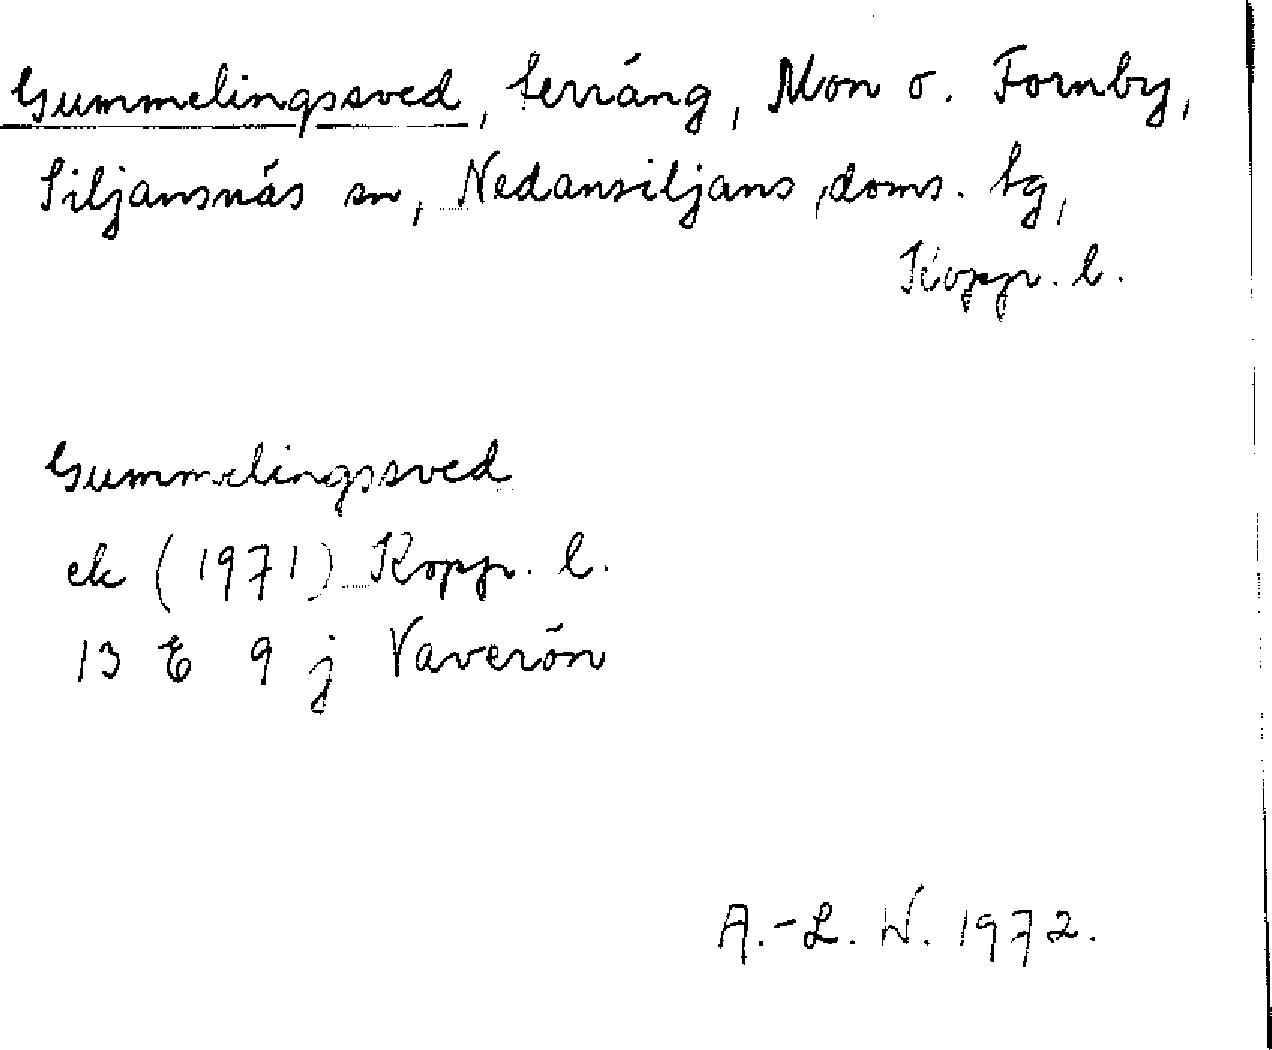 Gummelingssved, terräng, Mon o. Fornby,
Siljansnäs sn, Nedansiljans doms. tg,
Kopp. l.
Gummelingssved
ek (1971) Kopp. l.
13 E 9 j Vaverön
A.-L. W. 1972.